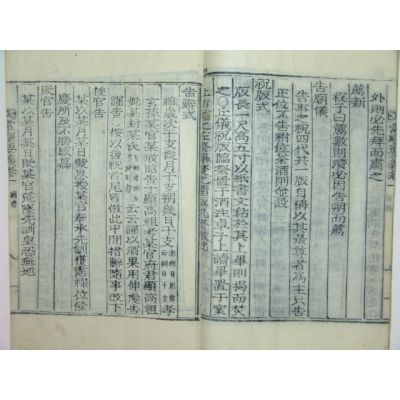 外則必先拜而肅之
薦新
程子曰薦數則瀆必因告朔而薦
告廟儀
告事之祝四代共一版自稱以其最尊者爲主只告
正位不告祔位茶酒則並設
祝版式
版長一尺高五寸以紙書文粘於其上畢則揭而焚
之○正儀祝版臨祭置于酒注卓子上讀畢置于案
上
告辭式
維歲次干支幾月干支朔幾日干支
孝
玄孫某官某敢昭告于顯高祖考某官府君顯高祖
妣某封某氏
謹以酒果用伸虔告
謹告
按以後首尾皆倣此中間措辭隨事改下
授官告
某以某月某日蒙恩授某官奉承先訓獲霑祿位餘
慶所及不勝感慕
貶官告
某以某月某日貶某官荒墜先訓皇恐無地